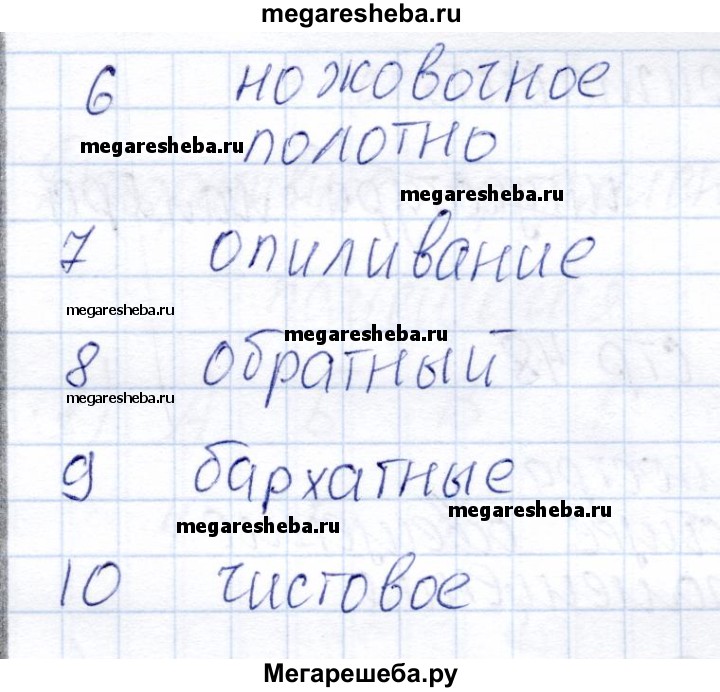 megaresheba.ru
6 ножовочное
megaresheba.ru полотно
megaresheba.ru
7 опиливание
megaresheba.ru
megaresheba.ru
8 обратный
megaresheba.ru
9 бархатные
megaresheba.ru
megaresheba.ru
10 чистовое
Мегарешеба.ру